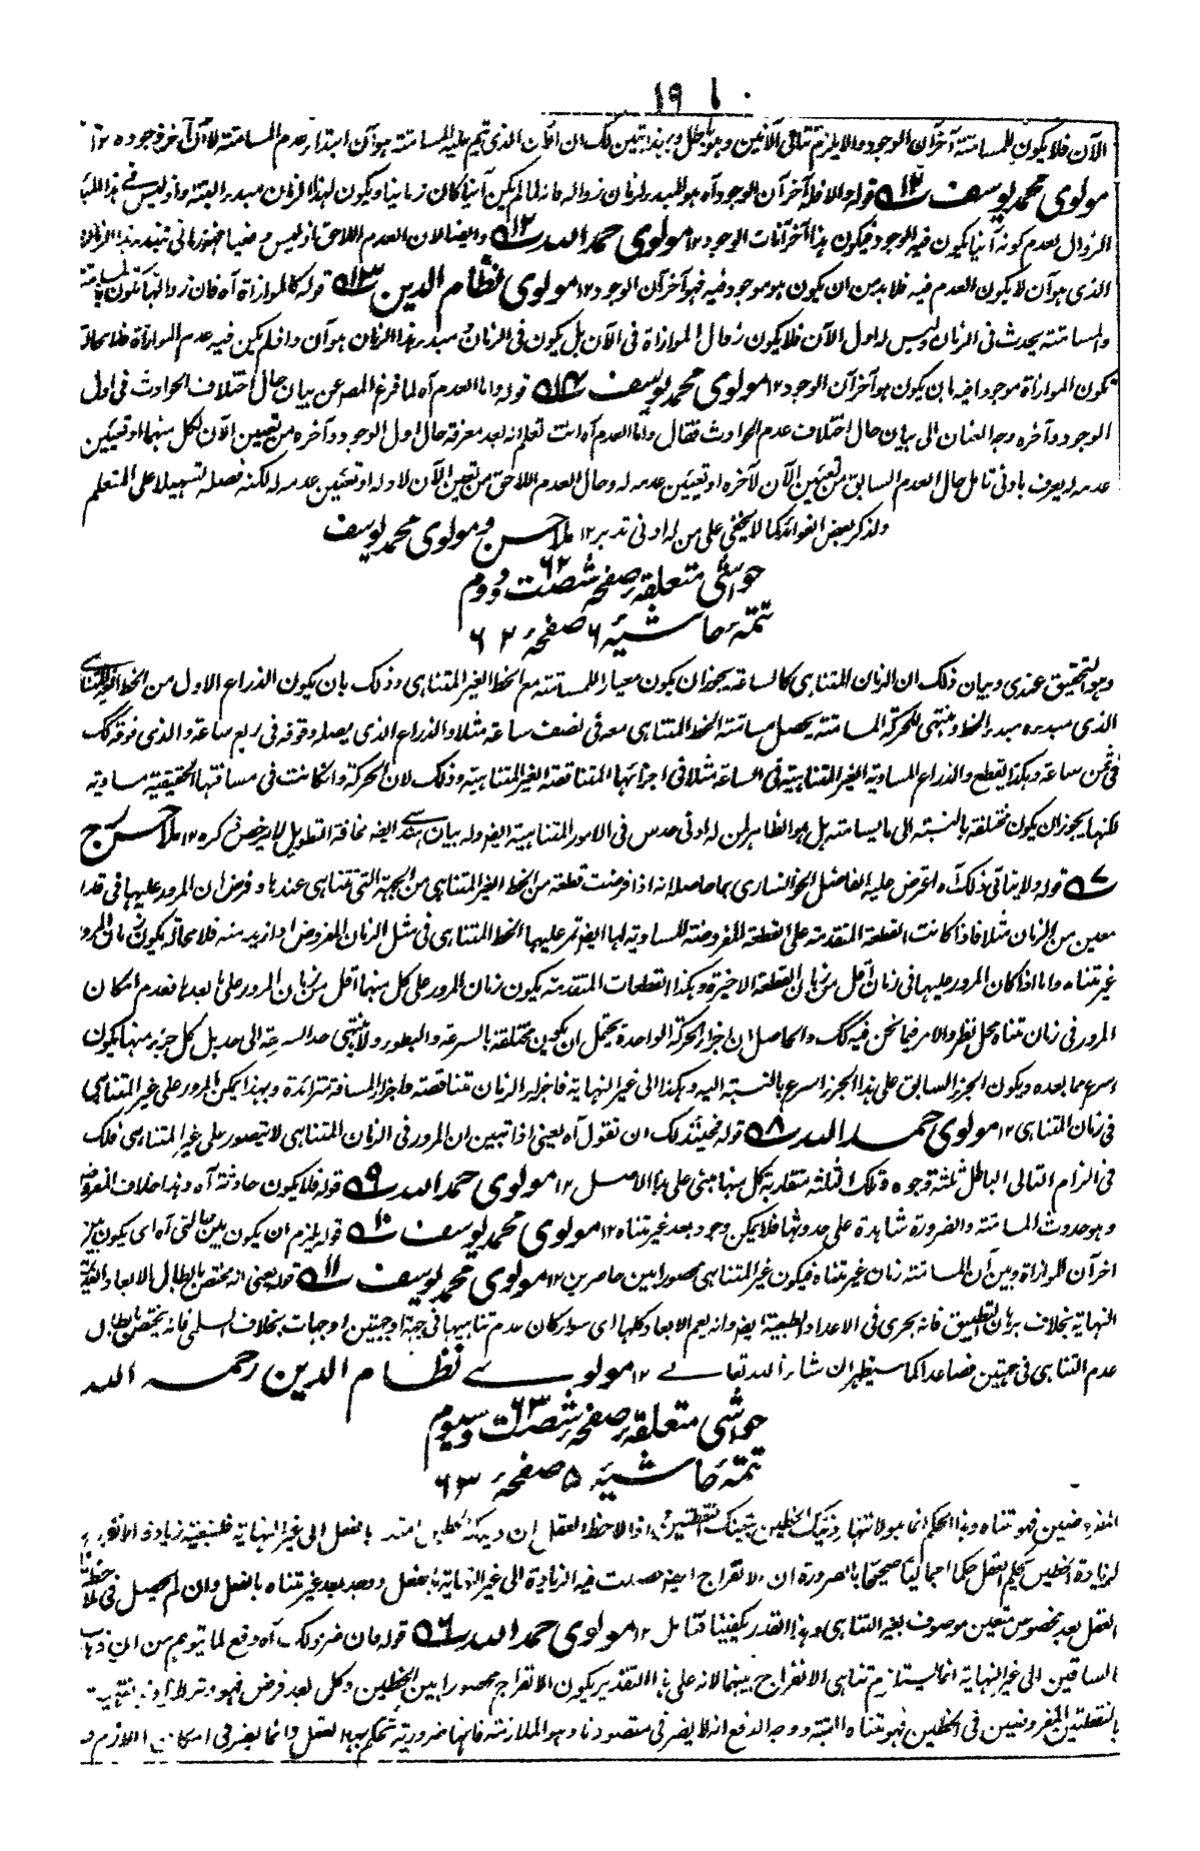 ١٩٠
الآن فلا يكون للمسامتة آخر آن الوجود والا يلزم تتالي الآنين وهو باطل وبهذا تبين لك ان الآن الذي تم عليه المسامتة هو آن ابتداء عدم المسامتة لا آن آخر وجوده ١٢
مولوی محمد یوسف ١٢ قوله والا فله آخر آن الوجود آه هو المبدء لزمان زواله فانه لما لم يكن آنيا كان زمانيا ويكون لهذا الزمان مبدء البتة واذ ليس في هذا المبدء
الزوال لعدم كونه آنيا يكون فيه الوجود فيكون هذا آخر آنات الوجود ١٢ مولوی حمد الله ١٣ وايضا لان العدم اللاحق اذ ليس دفعيا فهو زماني فمبدء هذا الزمان
الذي هو آن لا يكون العدم فيه فلا بد من ان يكون هو موجود فيه فهو آخر آن الوجود ١٢ مولوی نظام الدین ١٣ قوله كالموازاة آه فان زوالها يكون بالمسامتة
والمسامتة يحدث في الزمان وليس له اول الآن فلا يكون زوال الموازاة في الآن بل يكون في الزمان ومبدء هذا الزمان هو آن واذ لم يكن فيه عدم الموازاة فلا محالة
يكون الموازاة موجودا فيه بان يكون هو آخر آن الوجود ١٢ مولوی محمد یوسف ١٤ قوله واما العدم آه لما فرغ المصر عن بيان حال اختلاف الحوادث في اول
الوجود وآخره وجه العنان الى بيان حال اختلاف عدم الحوادث فقال واما العدم آه انت تعلم انه بعد معرفة حال اول الوجود وآخره من تعيين الآن لكل منهما او تعيين
عدمه له يعرف بادنى تامل حال العدم السابق من تعيين الآن لآخره او تعيين عدمه له وحال العدم اللاحق من تعيين الآن لاوله او تعيين عدمه له لكنه فصله تسهيلا على المتعلم
ولذكر بعض الفوائد كما لا يخفى على من له ادنى تدبر ١٢ ملا حسن و مولوی محمد یوسف
حواشی متعلقہ صفحہ شصت و دوم ٦٢
تتمۂ حاشیۂ ٦ صفحۂ ٦٢
وهو التحقيق عندي وبيان ذلك ان الزمان المتناهي كالساعة يجوز ان يكون معيارا للمسامتة مع الخط الغير المتناهي وذلك بان يكون الذراع الاول من الخط الغير المتناهي
الذي مبدءه مبدء الخط ومنتهى للحركة المسامتة يحصل مسامتة الخط المتناهي معه في نصف ساعة مثلا والذراع الذي يصله وفوقه في ربع ساعة والذي فوقه كك
في ثمن ساعة وهكذا يقطع والذراع المساوية الغير المتناهية في الساعة مثلا في اجزائها المتناقصة الغير المتناهية وذلك لان الحركة وان كانت في مسافتها الحقيقية مساوية
لكنها يجوز ان يكون مختلفة بالنسبة الى ما يسامته بل هو الظاهر لمن له ادنى حدس في الامور المتناهية ايضا وله بيان هندسي ايضا مخافة التطويل لا يرخص ذكره ١٢ ملا حسن ح
٧ قوله ولا ينافي ذلك آه اعترض عليه الفاضل الخوانساري بما حاصله انه اذا فرضت قطعة من الخط الغير المتناهي من الجهة التي تتناهى عندها وفرض ان المرور عليها في قدر
معين من الزمان مثلا فاذا كانت القطعة المتقدمة على القطعة المفروضة المساوية لها ايضا تمر عليها الخط المتناهي في مثل الزمان المفروض او ازيد منه فلا محالة يكون زمان المرور
غير متناه واما اذا كان المرور عليها في زمان اقل من زمان القطعة الاخيرة وهكذا القطعات المتقدمة يكون زمان المرور على كل منها اقل من زمان المرور على ما بعدها فعدم امكان
المرور في زمان متناه محل نظر والامر فيما نحن فيه كك والحاصل ان اجزاء الحركة الواحدة يحتمل ان يكون مختلفة بالسرعة والبطوء ولا ينتهي حد السرعة الى حد بل كل جزء منها يكون
اسرع مما بعده ويكون الجزء السابق على هذا الجزء اسرع بالنسبة اليه وهكذا الى غير النهاية فاجزاء الزمان متناقصة واجزاء المسافة متزائدة وبهذا يمكن المرور على غير المتناهي
في زمان المتناهي ١٢ مولوی حمد الله ٨ قوله فحينئذ لك ان تقول آه يعني اذا تبين ان المرور في الزمان المتناهي لا يتصور على غير المتناهي فلك
في الزام التالي الباطل ثلثة وجوه وتلك الثلثة متقاربة كل منها مبني على هذا الاصل ١٢ مولوی حمد الله ٩ قوله فلا يكون حادثة آه وهذا خلاف المفروض
وهو حدوث المسامتة والضرورة شاهدة على حدوثها فلا يمكن وجود بعد غير متناه ١٢ مولوی محمد یوسف ١٠ قوله يلزم ان يكون بين حالتي آه اي يكون بين
آخر آن الموازاة وبين آن المسامتة زمان غير متناه فيكون غير المتناهي محصورا بين حاصرين ١٢ مولوی محمد یوسف ١١ قوله يعني انه مختص بابطال الابعاد الغير
النهاية بخلاف برهان التطبيق فانه يجري في الاعداد الطبيعية ايضا وانه يعم الابعاد كلها اي سواء كان عدم تناهيها في جهة او جهتين او جهات بخلاف السلمي فانه يختص بابطال
عدم التناهي في جهتين فصاعدا كما سيظهر ان شاء الله تعالى ١٢ مولوی نظام الدین رحمہ اللہ
حواشی متعلقہ صفحہ شصت و سیوم ٦٣
تتمۂ حاشیۂ ٥ صفحۂ ٦٣
المفروضين فهو متناه وهذا الحكم انما هو لانتهاء ذينك الخطين بتينك النقطتين اذا لاحظ العقل ان ذينك الخطين امتدا بالفعل الى غير النهاية
لزيادة الخطين يحكم العقل حكما اجماليا صحيحا بالضرورة ان الانفراج ايضا حصلت فيه الزيادة الى غير النهاية بالفعل ووجد بعد غير متناه بالفعل وان لم يحصل في ملاحظة
العقل بعد مخصوص متعين موصوف بغير التناهي وهذا القدر يكفينا فتامل ١٢ مولوی حمد الله ٦ قوله فان ضر ذلك آه دفع لما يتوهم من ان ذهاب
الساقين الى غير النهاية انما يستلزم تناهي الانفراج بينهما لانه على هذا التقدير يكون الانفراج محصورا بين الخطين وكل بعد فرض فهو
بالنقطتين المفروضتين في الخطين فهو متناه البتة ووجه الدفع انه لا يضر في مقصودنا وهو الملازمة فانها ضرورية يحكم بها العقل وانما يضر في امكان اللازم و